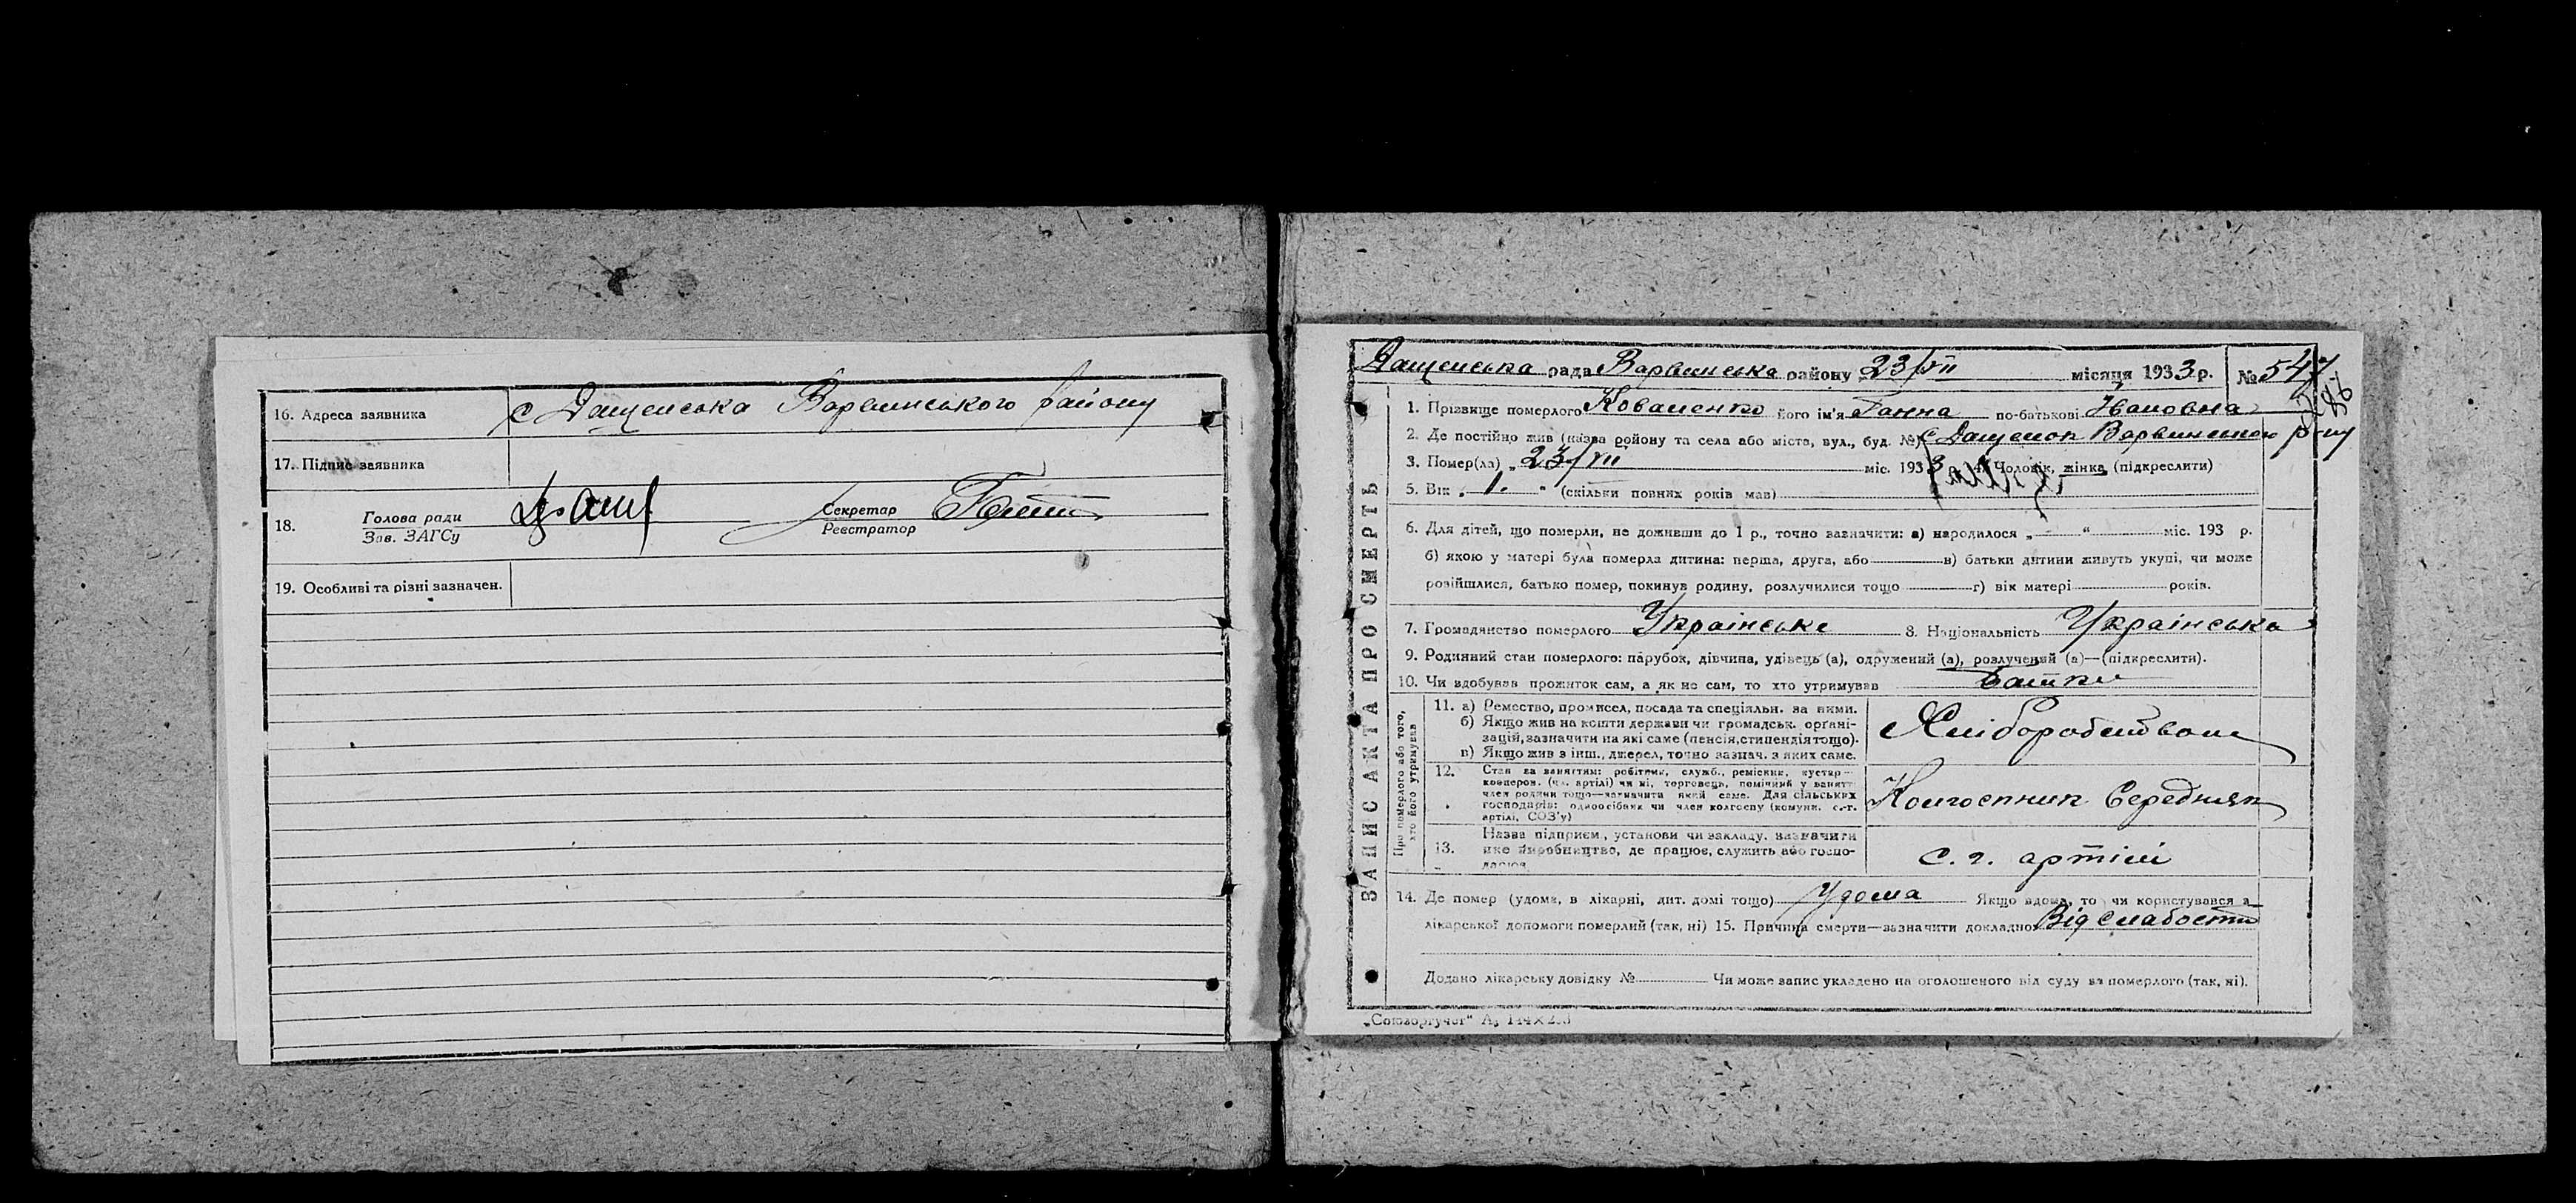 16. Адреса заявника с Дащенська Варвинського району
17. Підпис заявника
18. Голова ради
Зав. ЗАГСу
Секретар
Реєстратор
19. Особливі та різні зазначен.
ЗАПИС АКТА ПРО СМЕРТЬ
Дащенська рада Варвинська району 23/VII місяця 1933 р. № 547
1. Прізвище померлого Коваленко його ім'я Ганна по-батькові Івановна
2. Де постійно жив (назва району та села або міста, вул., буд. №) с Дащенок Варвинського р-ну
3. Помер(ла) „ 23/VII міс. 1933 р. 4. Чоловік, жінка (підкреслити)
5. Вік „ 1. " (скільки повних років мав)
6. Для дітей, що померли, не доживши до 1 р., точно зазначити: а) народилося „ “ міс. 193 р.
б) якою у матері була померла дитина: перша, друга, або в) батьки дитини живуть укупі, чи може
розійшлися, батько помер, покинув родину, розлучилися тощо г) вік матері років.
7. Громадянство померлого Українське 8. Національність Українська
9. Родинний стан померлого: парубок, дівчина, удівець (а), одружений (а), розлучений (а)—(підкреслити).
10. Чи здобував прожиток сам, а як не сам, то хто утримував Батьки
Про померлого або того,
хто його утримував
11. а) Ремество, промисел, посада та спеціяльн. за ними.
б) Якщо жив на кошти держави чи громадськ. органі-
зацій, зазначити на які саме (пенсія, стипендія тощо).
в) Якщо жив з інш., джерел, точно зазнач. з яких саме.
Хліборобством
12. Стан за заняттям: робітник, служб., ремісник, кустар—
коопером. (чл. артілі) чи ні, торговець, помічний у занятт
член родини тощо—зазначити який саме. Для сільських
господарів: одноосібник чи член колгоспу (комуни, с.-г.
артілі, СОЗ'у)
Колгоспник Середняк
13. Назва підприєм., установи чи закладу, зазначити
яке виробництво, де працює, служить або госпо-
дарює
с. г. артілі
14. Де помер (удома, в лікарні, дит. домі тощо) Удома Якщо вдома, то чи користувався з
лікарської допомоги померлий (так, ні) 15. Причина смерти—зазначити докладно Від слабости
Додано лікарську довідку № Чи може запис укладено на оголошеного від суду за померлого (так, ні).
„Союзоргучет“